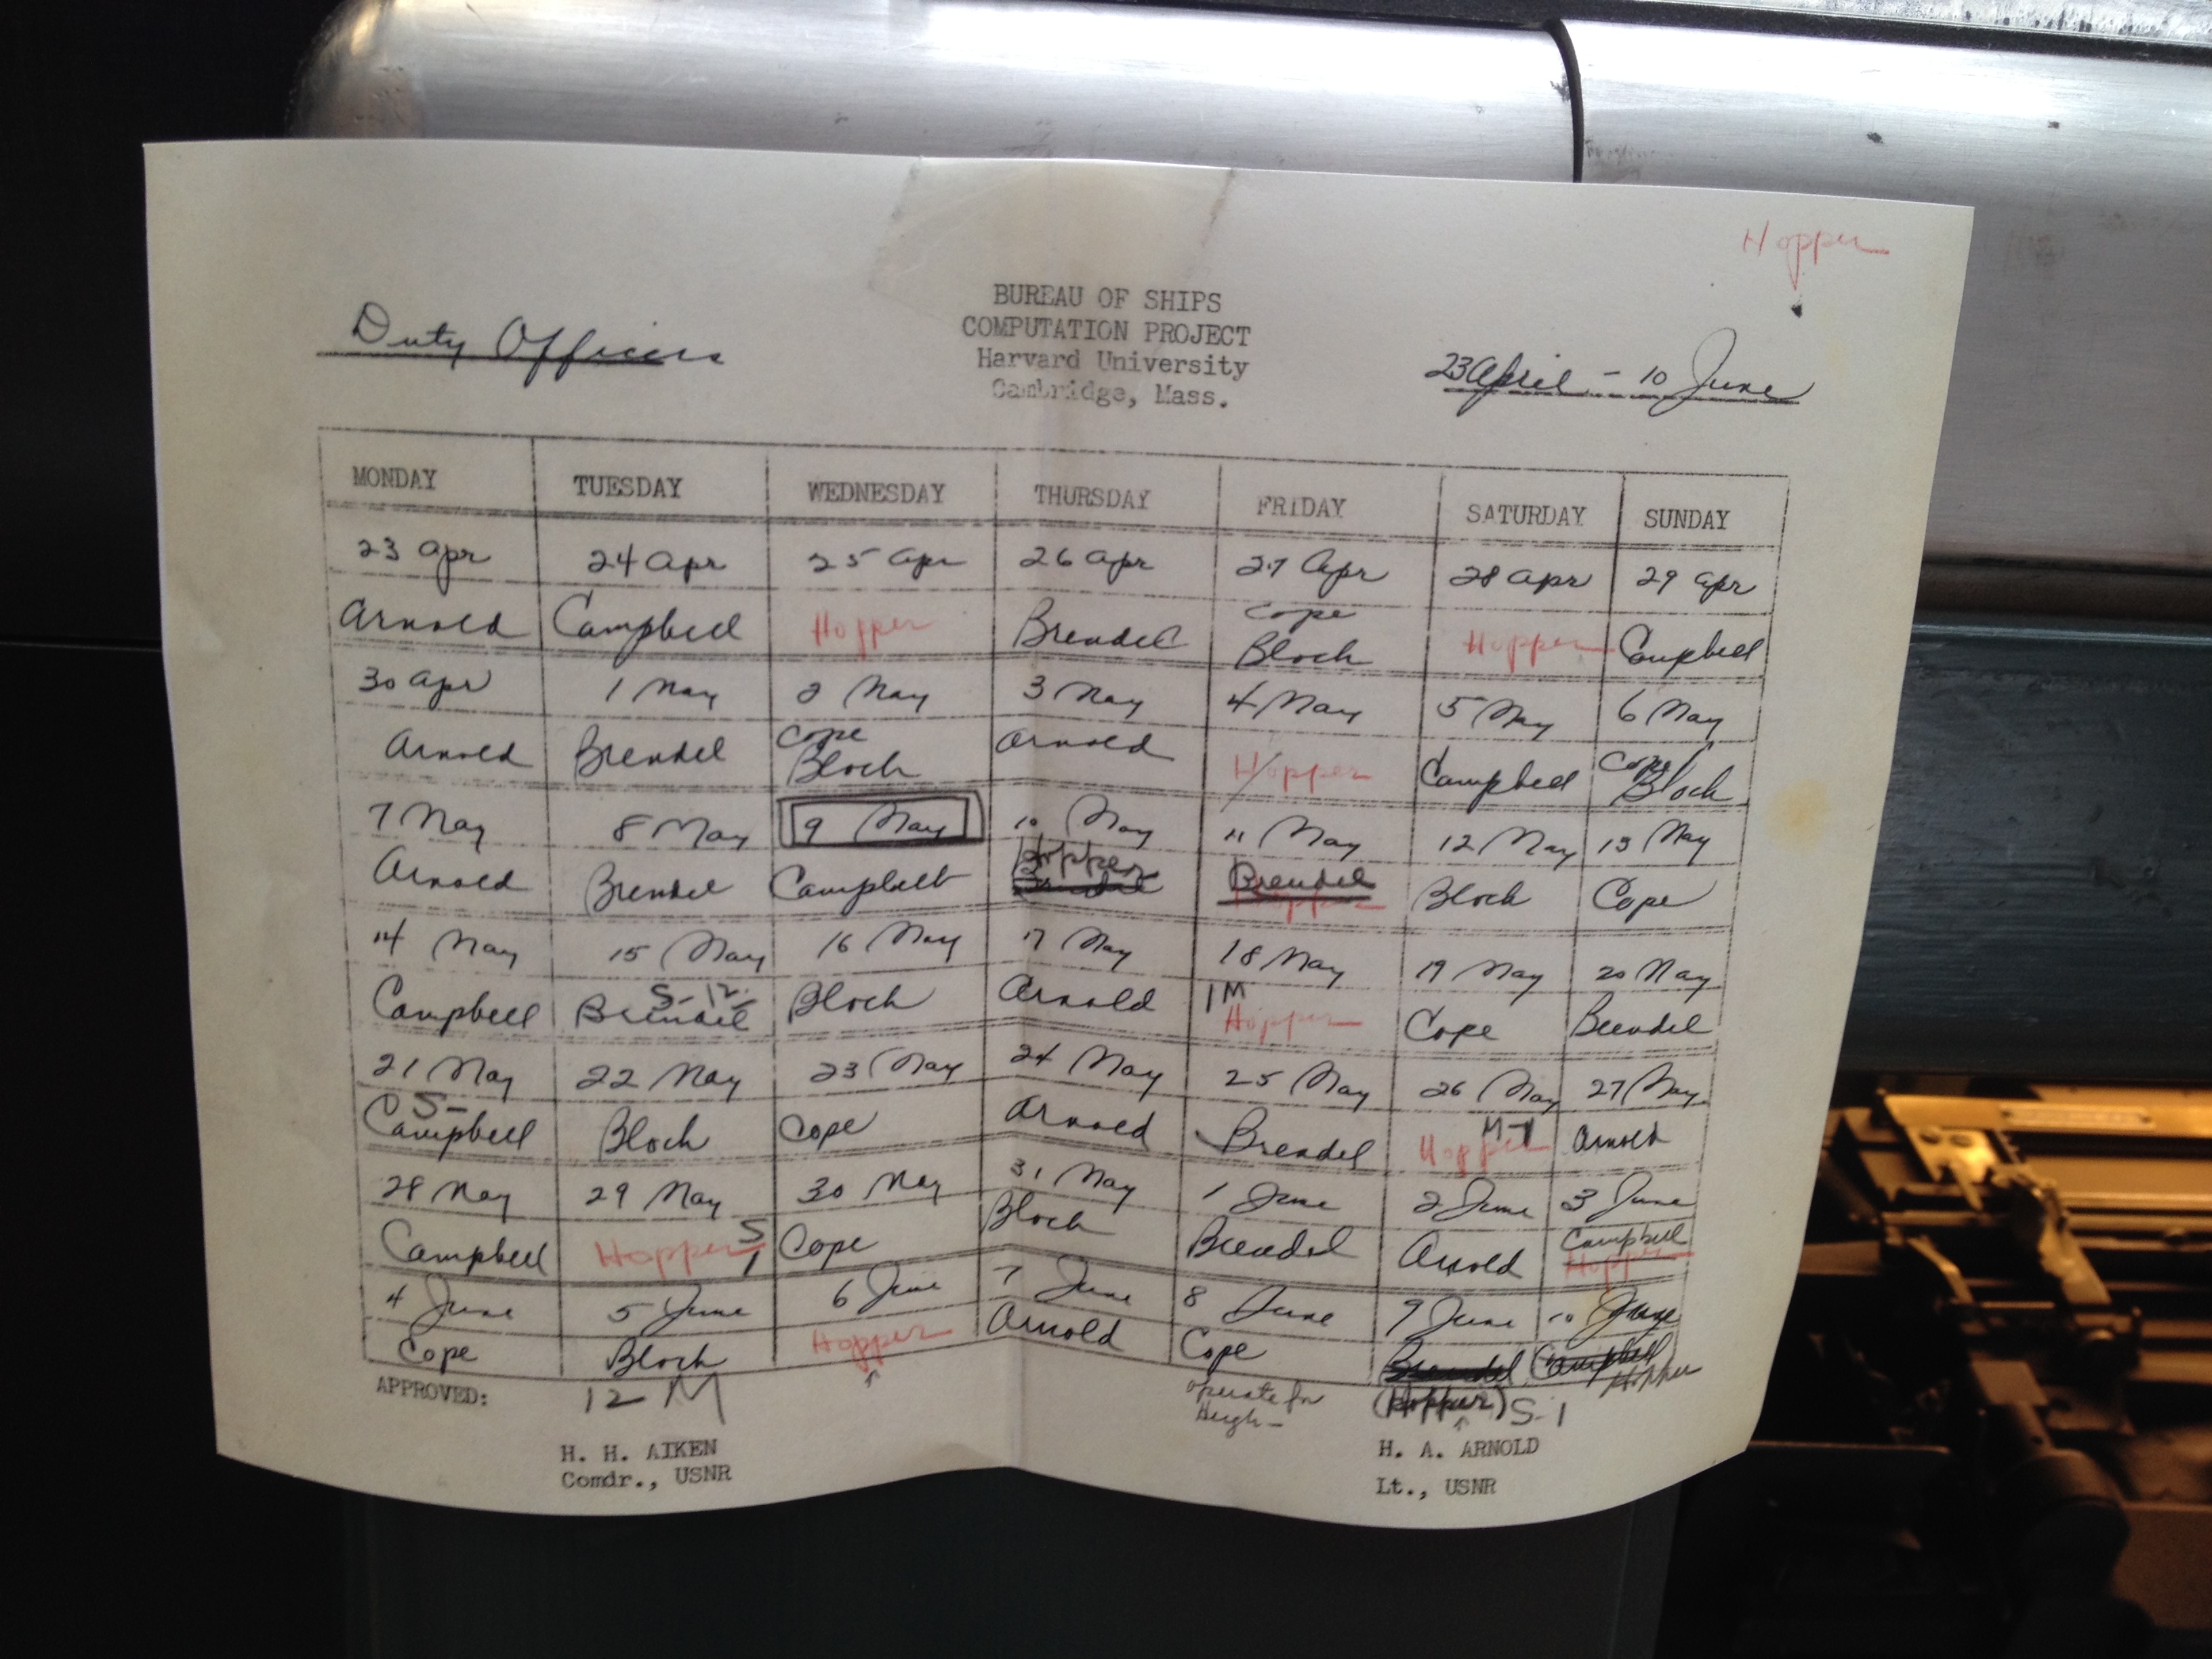 Hopper
BUREAU OF SHIPS
COMPUTATION PROJECT
Harvard University
Cambridge, Mass.
Duty Officers
23 April - 10 June
MONDAY TUESDAY WEDNESDAY THURSDAY FRIDAY SATURDAY SUNDAY
23 Apr 24 Apr 25 Apr 26 Apr 27 Apr 28 Apr 29 Apr
Arnold Campbell Hopper Brendel Cope Bloch Hopper Campbell
30 Apr 1 May 2 May 3 May 4 May 5 May 6 May
Arnold Brendel Cope Bloch Arnold Hopper Campbell Cope Bloch
7 May 8 May 9 May 10 May 11 May 12 May 13 May
Arnold Brendel Campbell Hopper Brendel Brendel Hopper Bloch Cope
14 May 15 May 16 May 17 May 18 May 19 May 20 May
Campbell S-12 Brendel Bloch Arnold 1M Hopper Cope Brendel
21 May 22 May 23 May 24 May 25 May 26 May 27 May
S- Campbell Bloch Cope Arnold Brendel M-1 Hopper Arnold
28 May 29 May 30 May 31 May 1 June 2 June 3 June
Campbell Hopper S 1 Cope Bloch Brendel Arnold Campbell Hopper
4 June 5 June 6 June 7 June 8 June 9 June 10 June
Cope Bloch Hopper Arnold Cope Brendel Campbell Hopper
APPROVED: 12 M operate for (Hopper) S-1
H. H. AIKEN
Comdr., USNR
H. A. ARNOLD
Lt., USNR